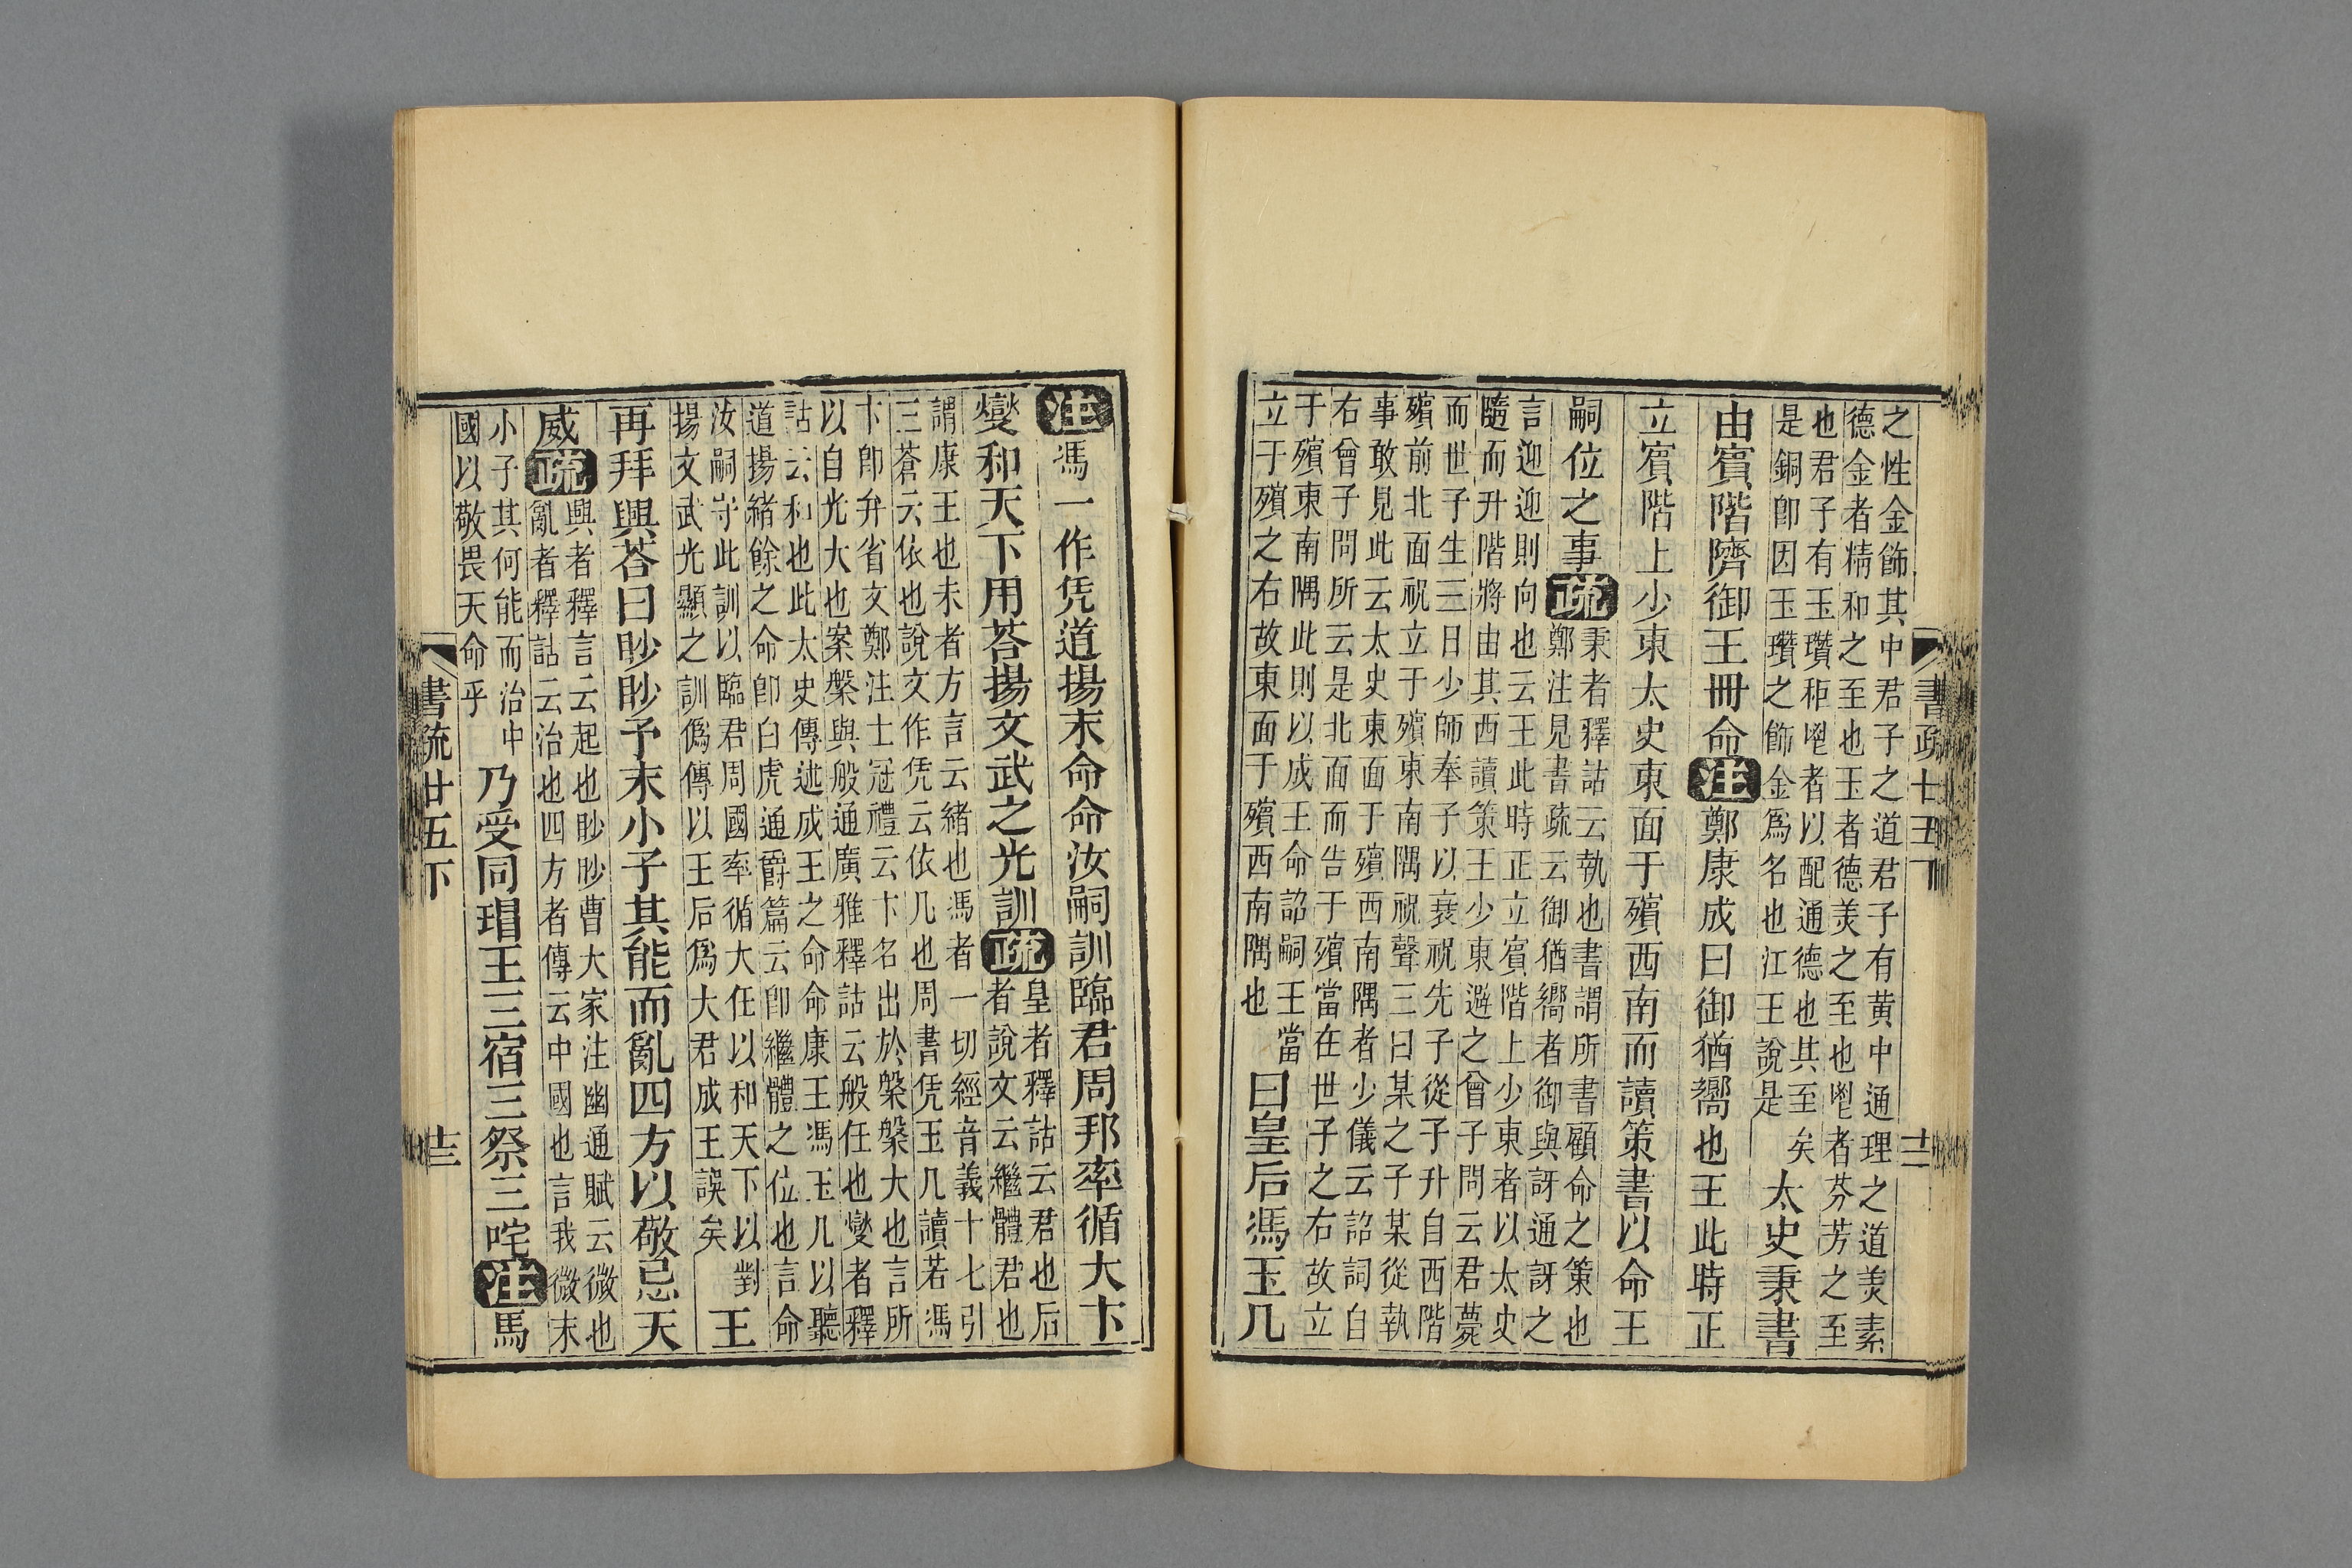 之性金飾其中君子之道君子有黄中通理之道美素
德金者精和之至也玉者德美之至也鬯者芬芳之至
也君子有玉瓚秬鬯者以配通德也其至矣
是銅卽因玉瓚之飾金爲名也江王說是
太史秉書
由賓階隮御王冊命注鄭康成曰御猶嚮也王此時正
立賓階上少東太史東面于殯西南而讀策書以命王
嗣位之事疏
秉者釋詁云執也書謂所書顧命之策也
鄭注見書疏云御猶嚮者御與訝通訝之
言迎迎則向也云王此時正立賓階上少東者以太史
隨而升階將由其西讀策王少東避之曾子問云君薨
而世子生三日少師奉子以衰祝先子從子升自西階
殯前北面祝立于殯東南隅祝聲三曰某之子某從執
事敢見此云太史東面于殯西南隅者少儀云詔詞自
右曾子問所云是北面而告于殯當在世子之右故立
于殯東南隅此則以成王命詔嗣王當
立于殯之右故東面于殯西南隅也
曰皇后馮玉几
書疏廿五下
十二
注馮一作凭道揚末命命汝嗣訓臨君周邦率循大卞
燮和天下用荅揚文武之光訓疏
皇者釋詁云君也后
者說文云繼體君也
謂康王也末者方言云緒也馮者一切經音義十七引
三蒼云依也說文作凭云依几也周書凭玉几讀若馮
卞卽弁省文鄭注士冠禮云卞名出於槃槃大也言所
以自光大也案槃與般通廣雅釋詁云般任也燮者釋
詁云和也此太史傳述成王之命命康王馮玉几以聽
道揚緒餘之命卽白虎通爵篇云卽繼體之位也言命
汝嗣守此訓以臨君周國率循大任以和天下以對
揚文武光顯之訓僞傳以王后爲大君成王誤矣
王
再拜興荅曰眇眇予末小子其能而亂四方以敬忌天
威疏
興者釋言云起也眇眇曹大家注幽通賦云微也
亂者釋詁云治也四方者傳云中國也言我微末
小子其何能而治中
國以敬畏天命乎
乃受同瑁王三宿三祭三咤注馬
書疏廿五下
十三